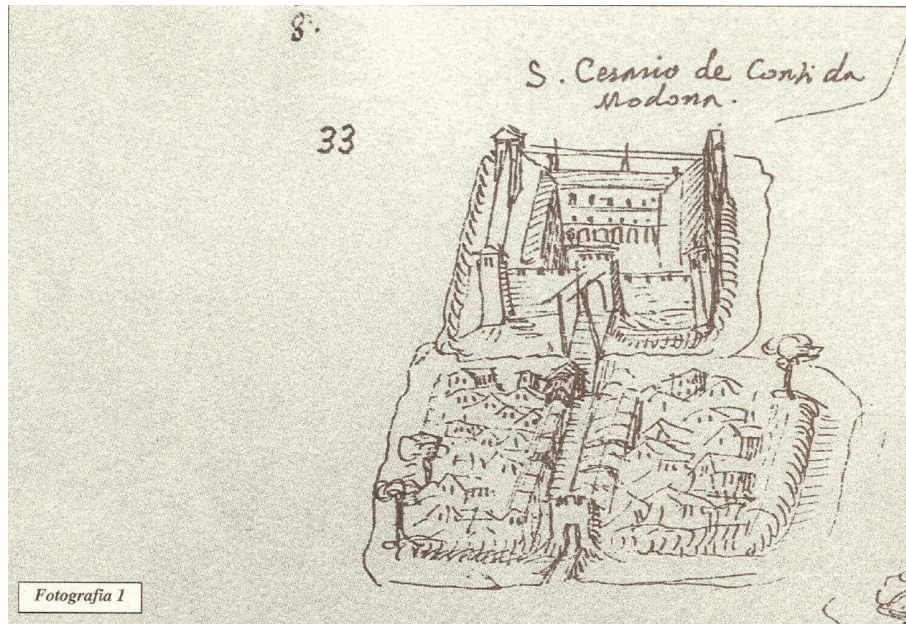 8.
S. Cesario de Conti da
Modona.
33
Fotografia 1